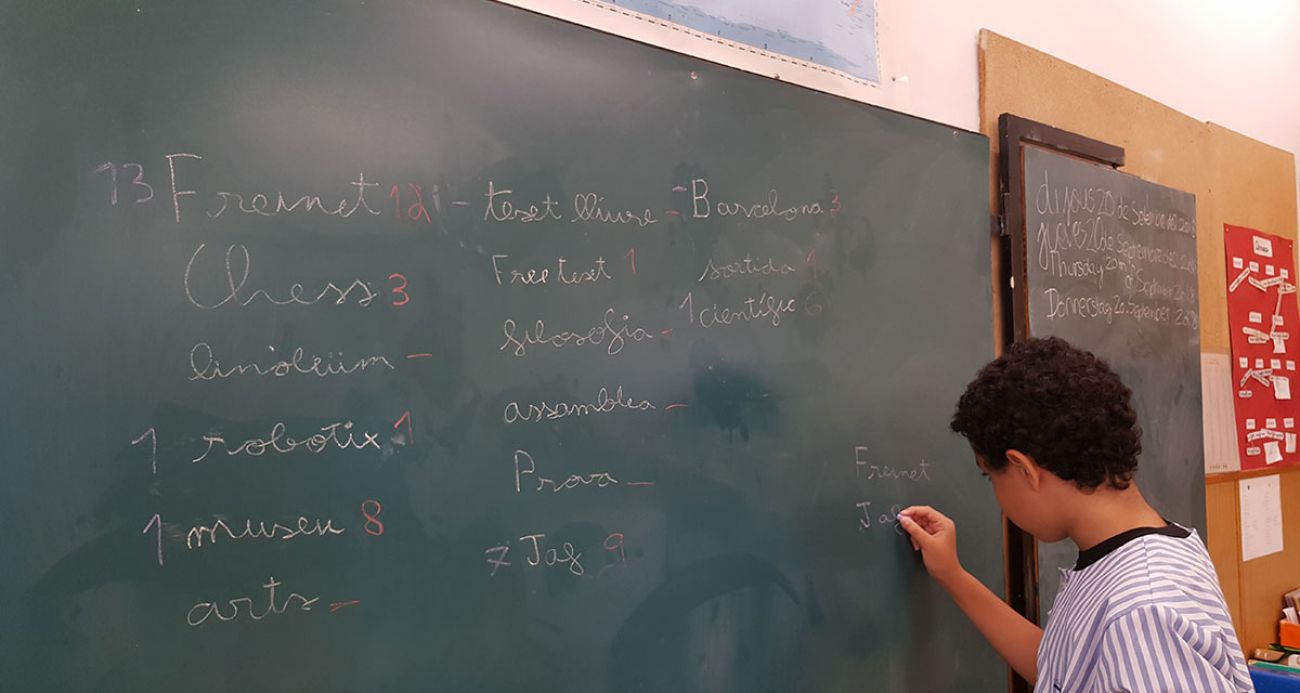 13 Freinet 12
Chess 3
linòleüm -
1 robotix 1
1 museu 8
arts -
- text lliure -
Free text 1
filosofia -
assamblea -
Prova -
7 Jaf 9
- Barcelona 3
sortida
1 científic 6
Freinet
Jaf
dijous 20 de Setembre 2018
jueves 20 de Septiembre 2018
Thursday 20th of September 2018
Donnerstag 20. September 2018